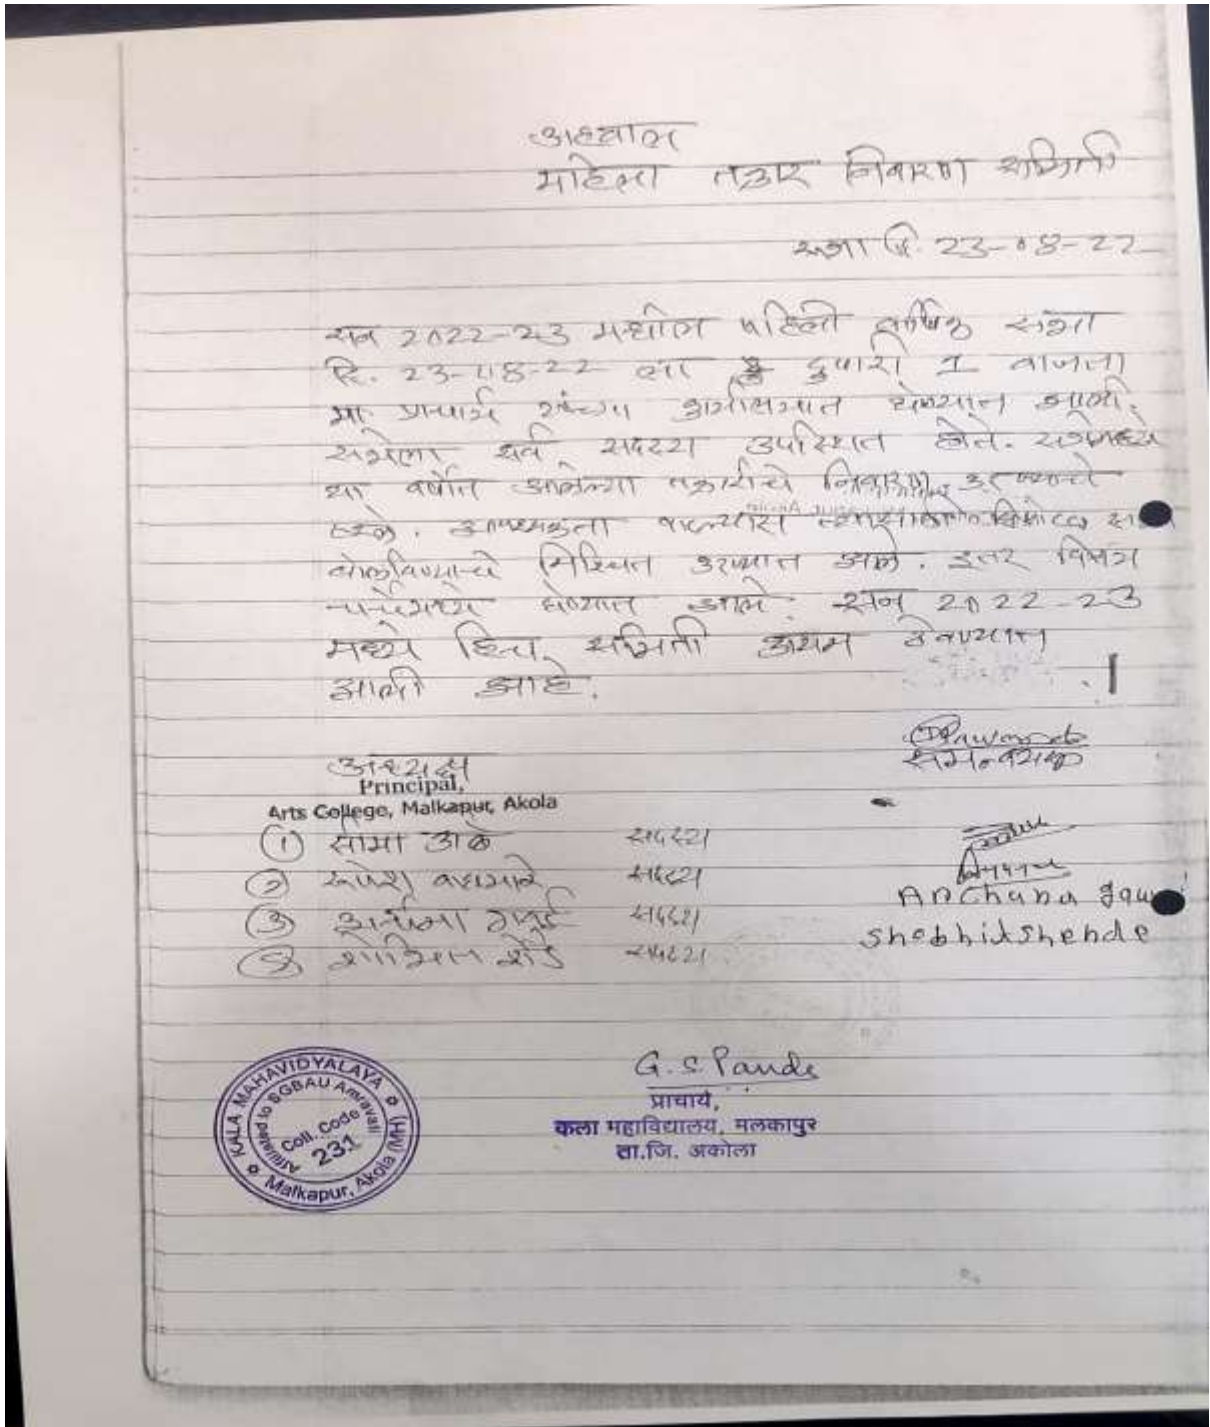 अहवाल
महिला तक्रार निवारण समिती
सभा दि. 23-08-22
सन 2022-23 मधील पहिली वार्षिक सभा
दि. 23-08-22 ला दुपारी 1 वाजता
मा. प्राचार्य यांच्या घेण्यात आली.
सभेला सर्व सदस्य उपस्थित होते. सभेमध्ये
या वर्षात आलेल्या तक्रारींचे निवारण करण्याचे
ठरले. आवश्यकता वाटल्यास
बोलविण्याचे निश्चित करण्यात आले. इतर विषय
चर्चेमध्ये घेण्यात आले. सन 2022-23
मध्ये हिच समिती कायम ठेवण्यात
आली आहे.
समन्वयक
अध्यक्ष
Principal,
Arts College, Malkapur, Akola
(1) सदस्य
(2) सदस्य
(3) सदस्य Archana
सदस्य Shobhit Shende
G. S. Pande
प्राचार्य,
कला महाविद्यालय, मलकापुर
ता.जि. अकोला
KALA MAHAVIDYALAYA
Affiliated to SGBAU Amravati
Coll. Code
231
Malkapur, Akola (MH)